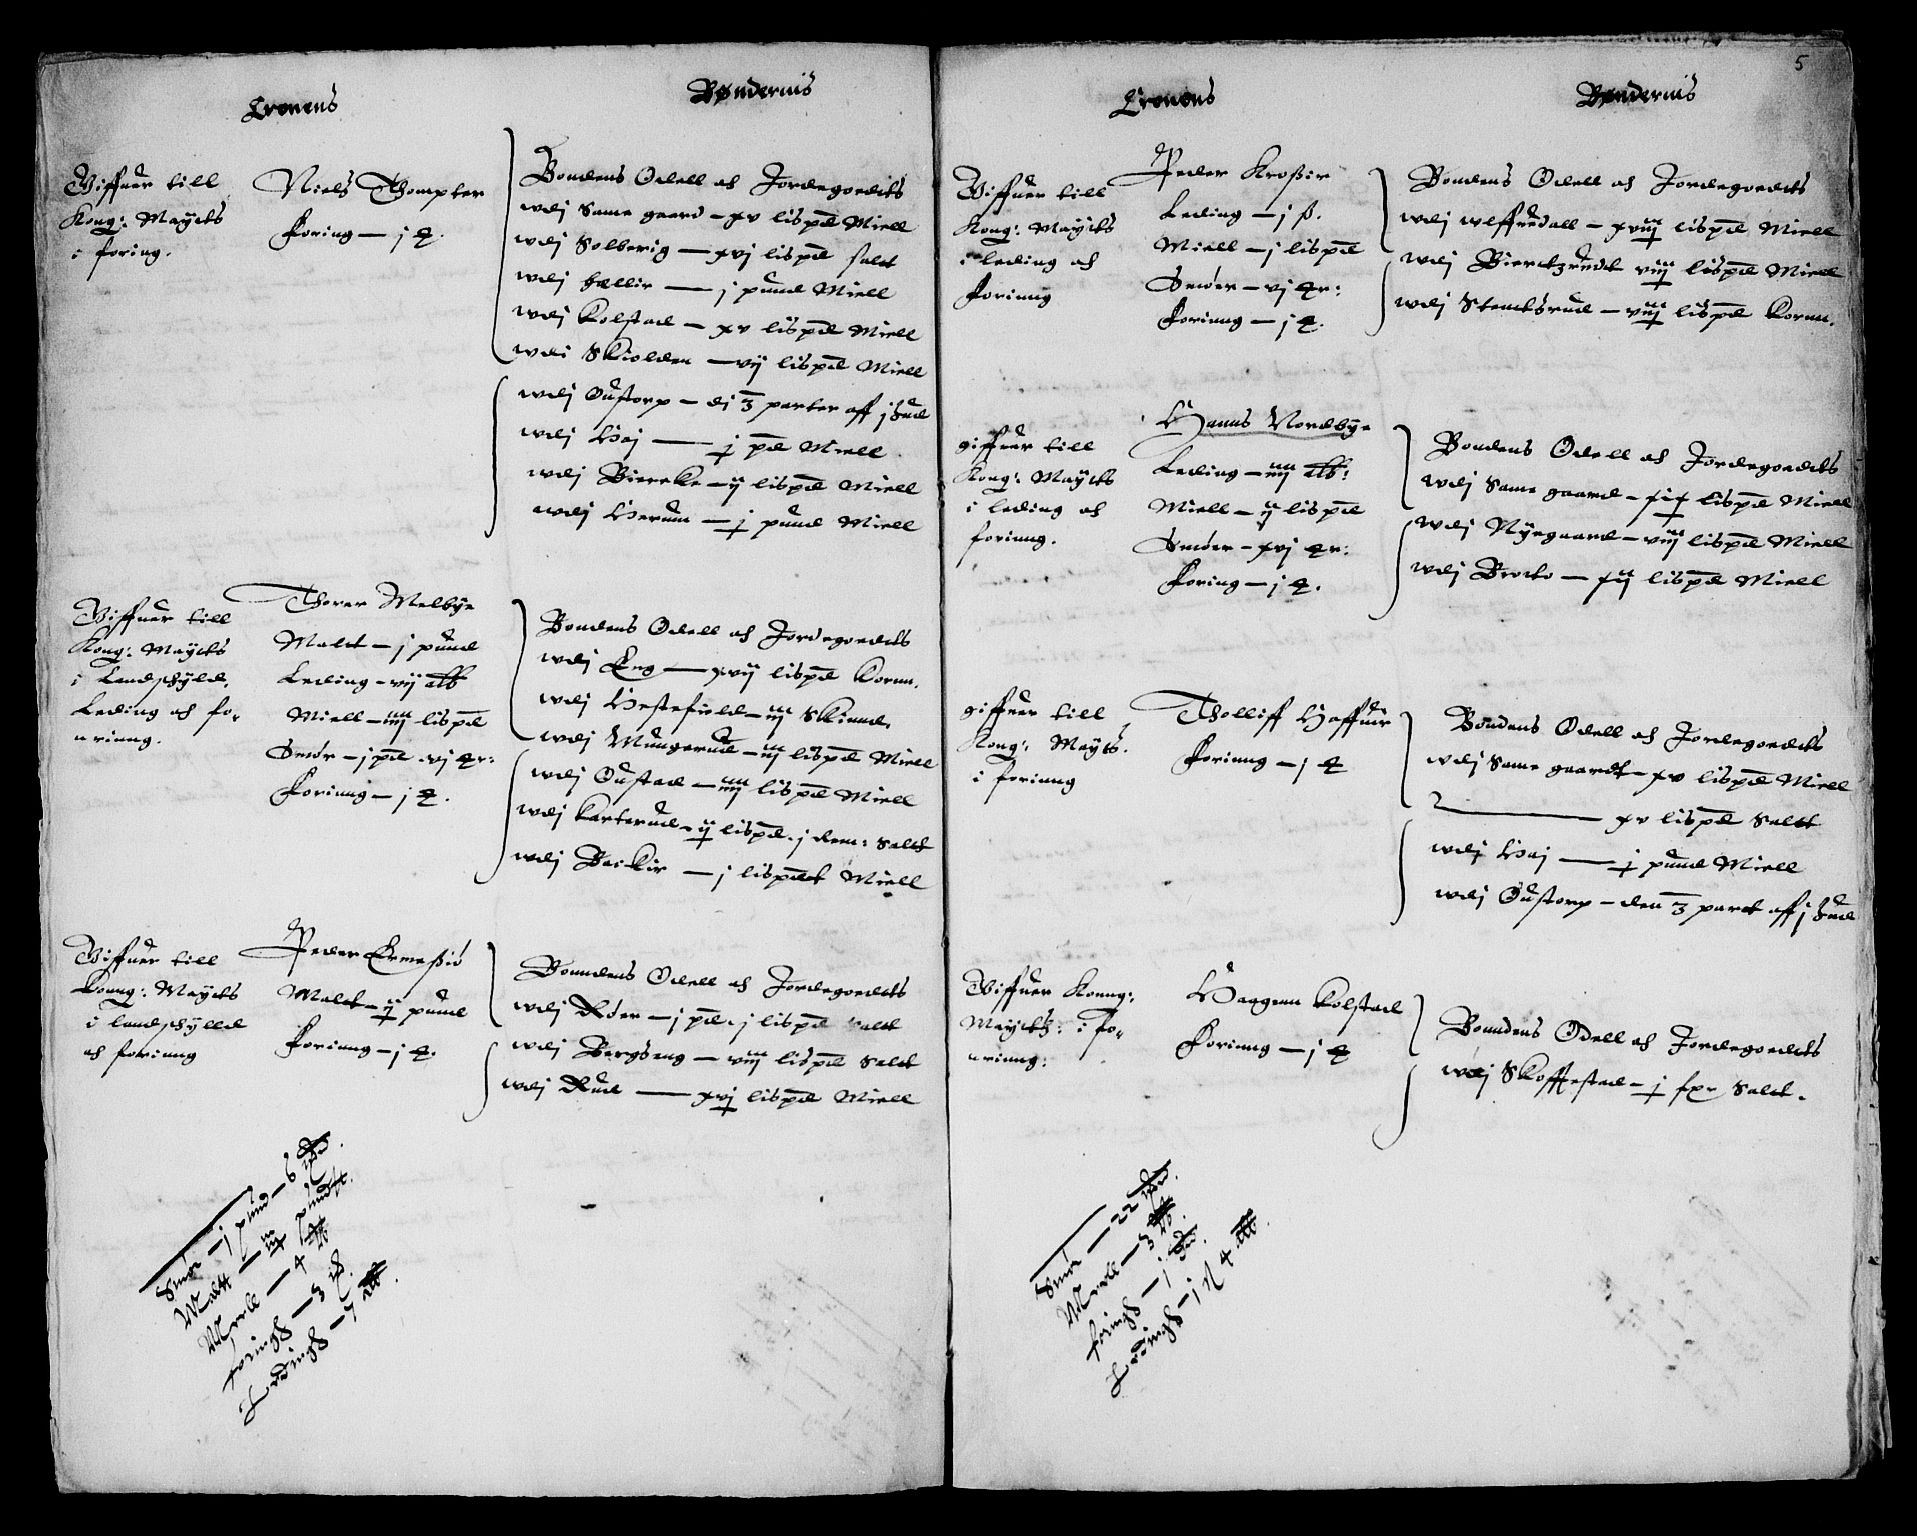 Cronens
Bøndernis
Giffuer till
Kong: Maÿets
i foring.
Niels Thompter
Foring — j
Bondens Odell och Jordegoedtz
wdj Same gaard — xv lispd Miell
wdj Solberig — xvj lispd salt
wdj Hellir — j pund Miell
wdj Kolstad — xv lispd Miell
wdi Skiolden — vij lispd Miell
wdj Oustorp — di 3 parter aff j hud
wdj Haj — j pd Miell
wdj Biercke — ij lispd Miell
wdj Herum — j pund Miell
Giffuer till
Kong: Maÿets
i Landschyld,
Leding och fo-
uriung.
Thorer Melbye
Malt — j pund
Leding — vij alb
Miell — iiij lispd
Smør — j pd vj
Foriung — j
Bondens Odell och Jordegoedtz
wdj Eeg — xvij lispd Kornn.
wdj Hestefield — iij Skinnd
wdj Mungerud — iij lispd Miell
wdj Oustad — iiij lispd Miell
wdj Karterud — ij lispd. j rem: Saltt
wdj Backir — j lispdt Miell
Giffuer till
Konng: Mayets
i landschylld
och foriung
Peder Ermessiø
Maltt — ij pund
Foriung — j
Bonndens Odell och Jordegoedtz
wdj Røer — j pd. j lispd Saltt
wdj Bergseng — viij lispd Saltt
wdj Rud — xvj lispd Miell
Smør — j pund — 6
Maltt — iij pundt.
Meell — 4
foringh — 3
Ledingh — 7 alb
5
Cronens
Bøndernis
Giffuer till
Kong: Mayets
i leding och
foriung
Peder Krossir
Leding — j ß.
Miell — j lispd
Smøer — vj
Foriung — j
Bondens Odell och Jordegoedtz
wdj wlffuedall — xviij lispd Miell
wdj Bierckerudt viij lispd Miell
wdj Stentsrud — viij lispd Kornn.
giffuer till
Kong: Mayets
i leding och
foriung.
Hanns Nordbye
Leding — iiij alb:
Miell — ij lispd
Smøer — xvj
Foring — j
Bondens Odell och Jordegoedtz
wdj Same gaard — xix lispd Miell
wdj Nyegaard — viij lispd Miell
wdj Brocko — xij lispd Miell
giffuer till
Kong: Mayts.
i foriung
Tholliff Haffuir
Foriung — j
Bondens Odell och Jordegoedtz
wdj Same gaardt — xv lispd Miell
— xv lispd Saltt
wdj Haj — j pund Miell
wdj Oustorp — den 3 part aff j hud
Giffuer Konng:
Mayetz: i fo-
uriung:
Haagenn Kolstad
Foriung — j
Bonndens Odell och Jordegoedtz
wdj Skoffestad — j sxr Saltt.
Smør — 22
Meell — 3
foringh — j
Ledingh — j 4 alb